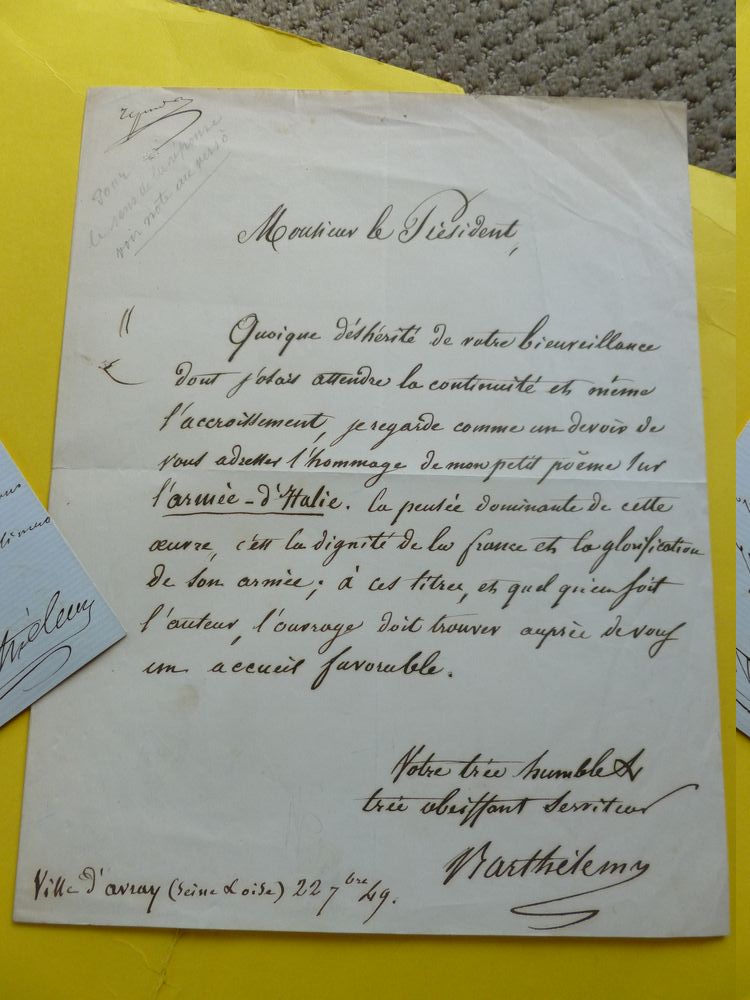 Pour
le sens de la réponse
voir note au verso
Monsieur le Président,
Quoique déshérité de votre bienveillance
dont j'osais attendre la continuité et même
l'accroissement, je regarde comme un devoir de
vous adresser l'hommage de mon petit poëme sur
l'armée-d'Italie. la pensée dominante de cette
œuvre, c'est la dignité de la france et la glorification
de son armée; à ces titres, et quel qu'en soit
l'auteur, l'ouvrage doit trouver auprès de vous
un accueil favorable.
Votre très humble &
très obéissant serviteur
Barthélemy
Ville d'avray (Seine & oise) 22 7bre 49.